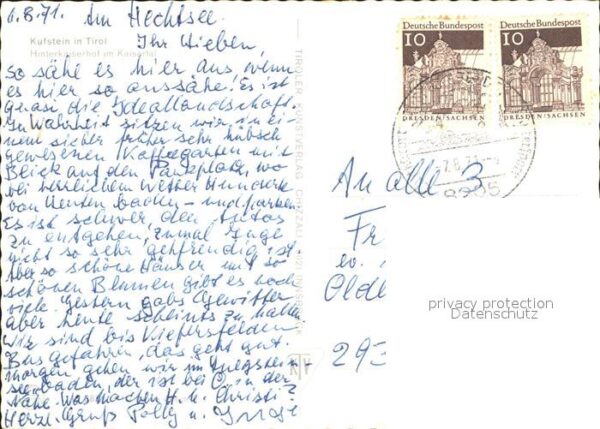 6.8.71. Am Hechtsee.
Kufstein in Tirol
Hinterkaiserhof im Kaisertal
Ihr Lieben,
so sähe es hier aus, wenn
es hier so aussähe! Es ist
quasi die Ideallandschaft.
In Wahrheit sitzen wir in ei-
nem sicher früher sehr hübsch
gewesenen Kaffeegarten mit
Blick auf den Parkplatz, wo
bei herrlichem Wetter Hunderte
von Leuten baden – und parken.
Es ist schwer, den Autos
zu entgehen, zumal Inge
nicht so sehr gehfreudig ist.
Aber so schöne Häuser mit so
schönen Blumen gibt es noch
viele. Gestern gabs Gewitter
aber heute scheints zu halten.
Wir sind bis Kiefersfelden
Bus gefahren, das geht gut.
Morgen gehen wir im
see baden, der ist bei in der
Nähe. Was machen H. u. Christi?
Herzl. Gruß Polly u. Inge
TIROLER KUNSTVERLAG CHIZZALI
Deutsche Bundespost
10
DRESDEN/SACHSEN
Deutsche Bundespost
10
DRESDEN/SACHSEN
An alle 3
Fr
ev.
Olde
293
privacy protection
Datenschutz